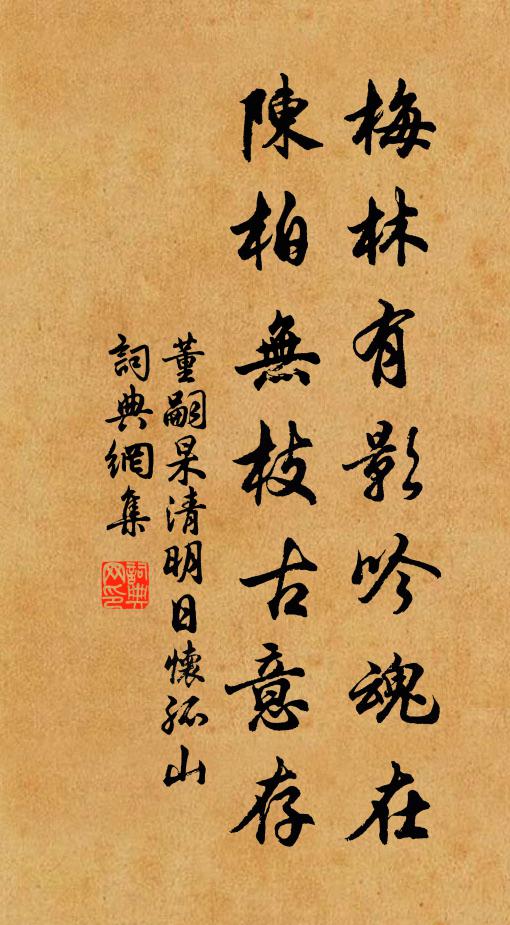 梅林有影吟魂在
陳柏無枝古意存
董嗣杲清明日懷孤山
詞典網集
詞典网印